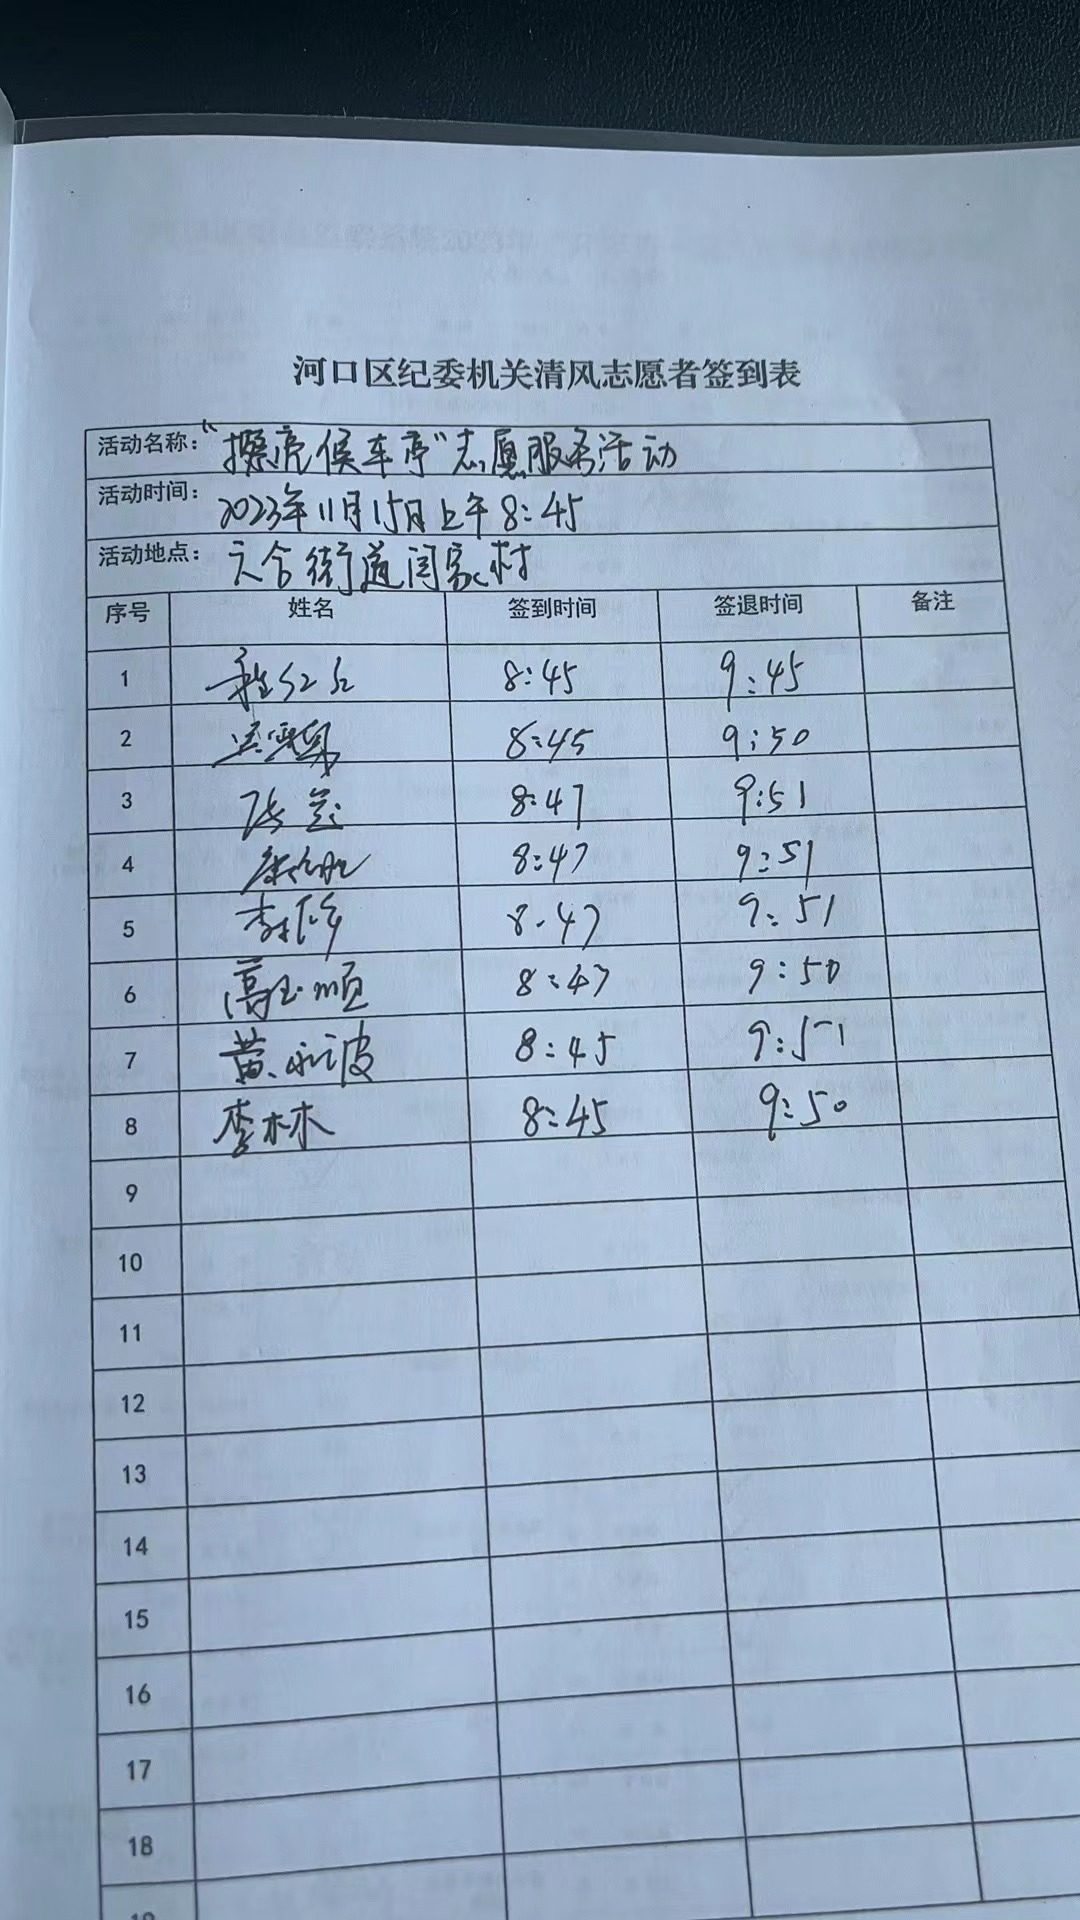 河口区纪委机关清风志愿者签到表
活动名称:“擦亮候车亭”志愿服务活动
活动时间:2023年11月15日上午8:45
活动地点:六合街道闫家村
序号 姓名 签到时间 签退时间 备注
1 8:45 9:45
2 8:45 9:50
3 8:47 9:51
4 8:47 9:51
5 8:47 9:51
6 高玉顺 8:47 9:50
7 黄永波 8:45 9:51
8 李林 8:45 9:50
9
10
11
12
13
14
15
16
17
18
19